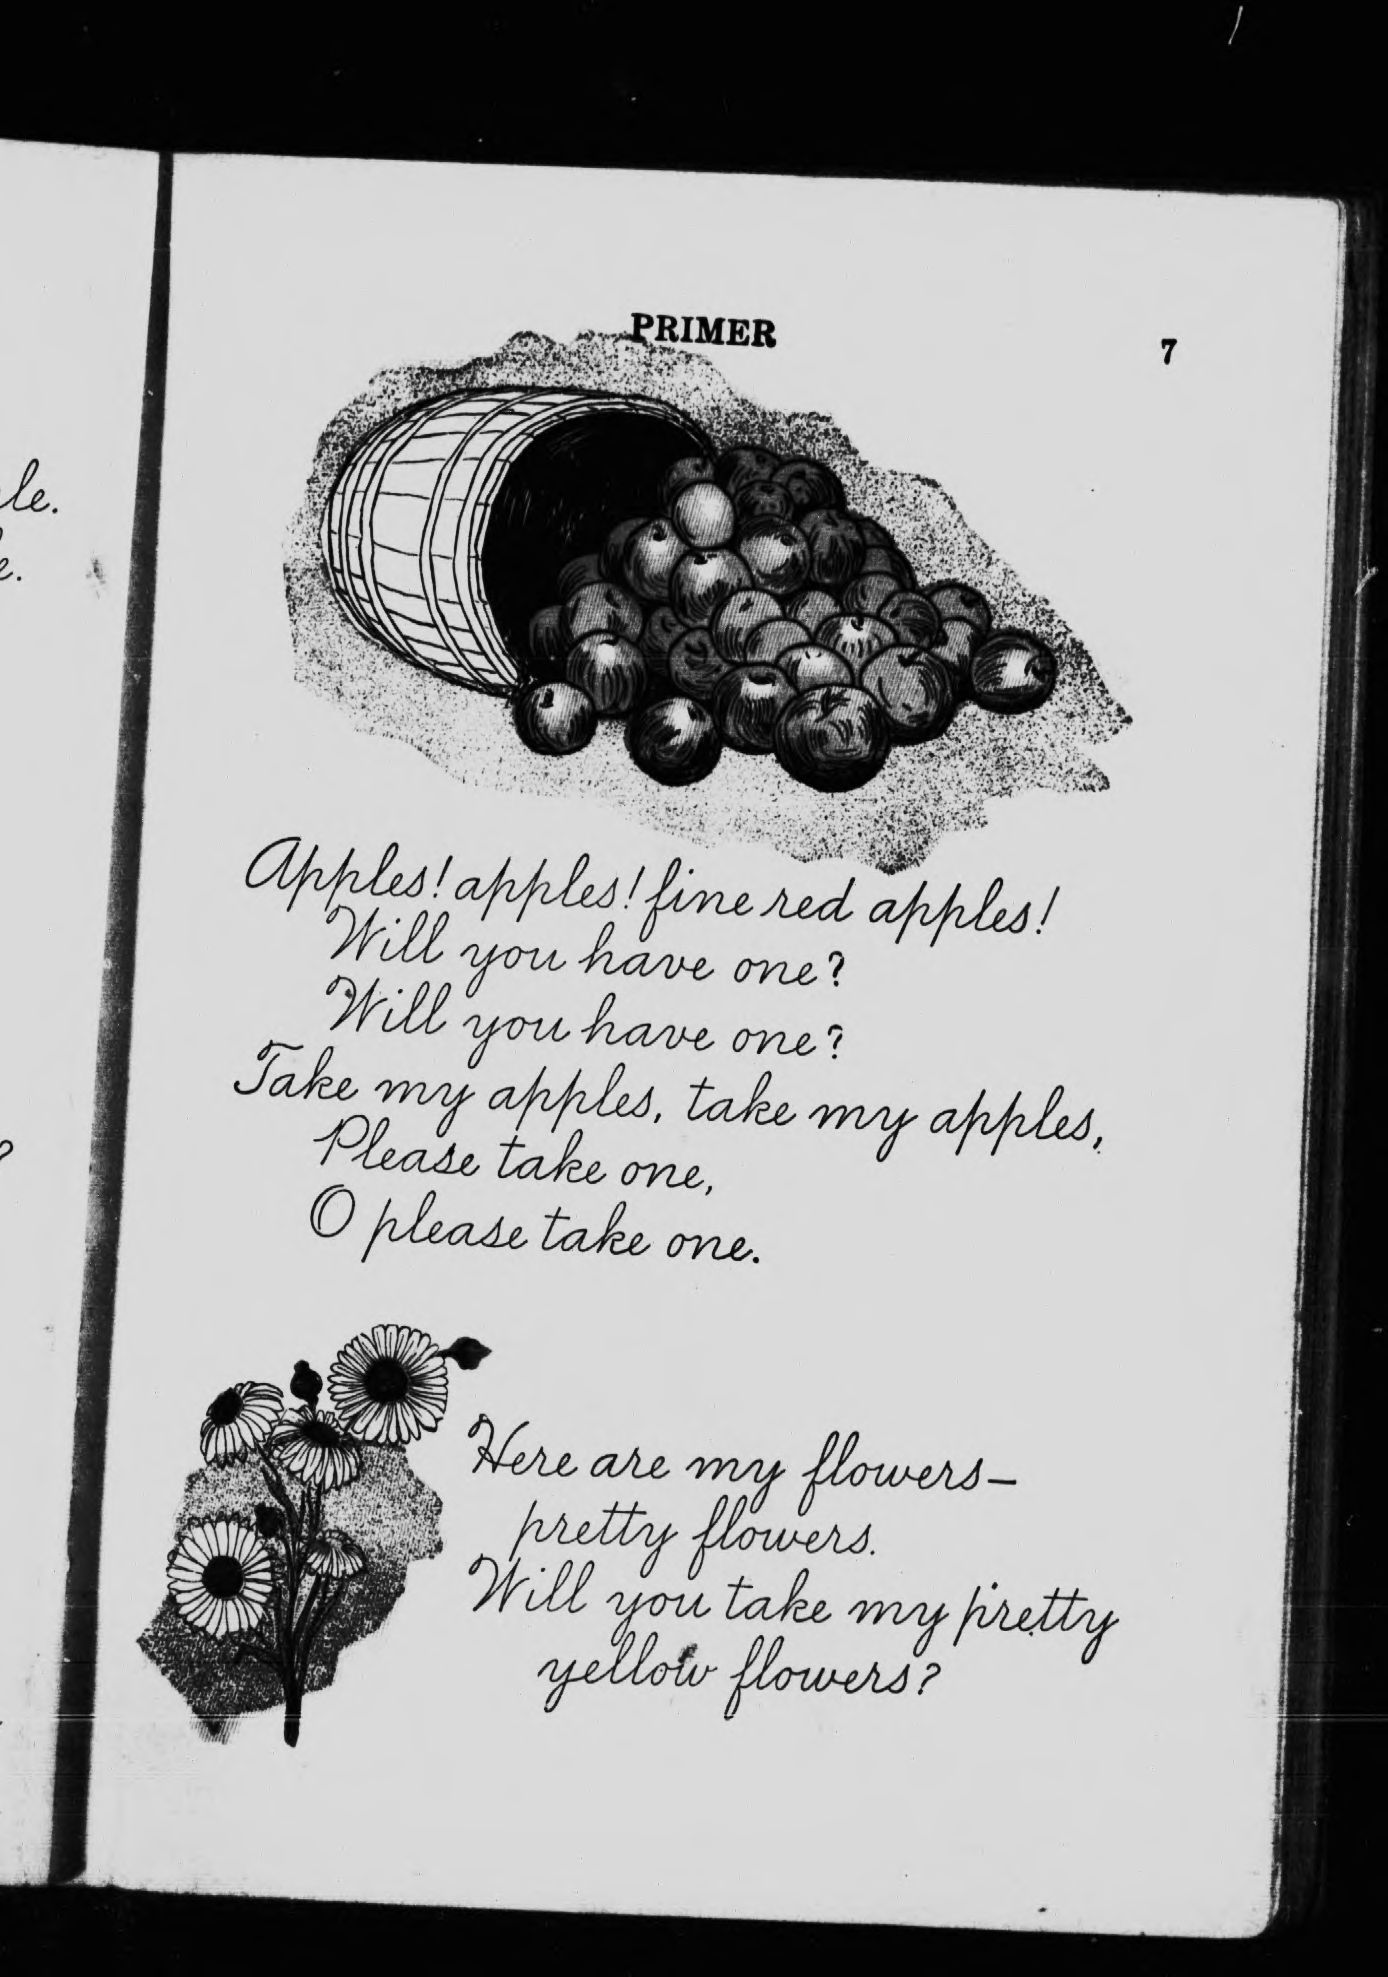 PRIMER 7
Apples! apples! fine red apples!
Will you have one?
Will you have one?
Take my apples, take my apples,
Please take one,
O please take one.
Here are my flowers—
pretty flowers.
Will you take my pretty
yellow flowers?